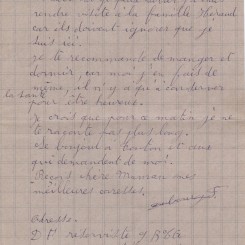 rendre visite à la famille
car ils doivent ignorer que je
suis ici.
je te recommande de manger et
dormir, car moi j'en fait de
même, il n'y a que à conserver
la santé
pour être heureux.
Je crois que pour a matin je ne
te raconte pas plus long.
le bonjour à tonton et ceux
qui demandent de moi.
Reçois chère Maman mes
meilleures caresses.
Adresse
D. F. reserviste 9